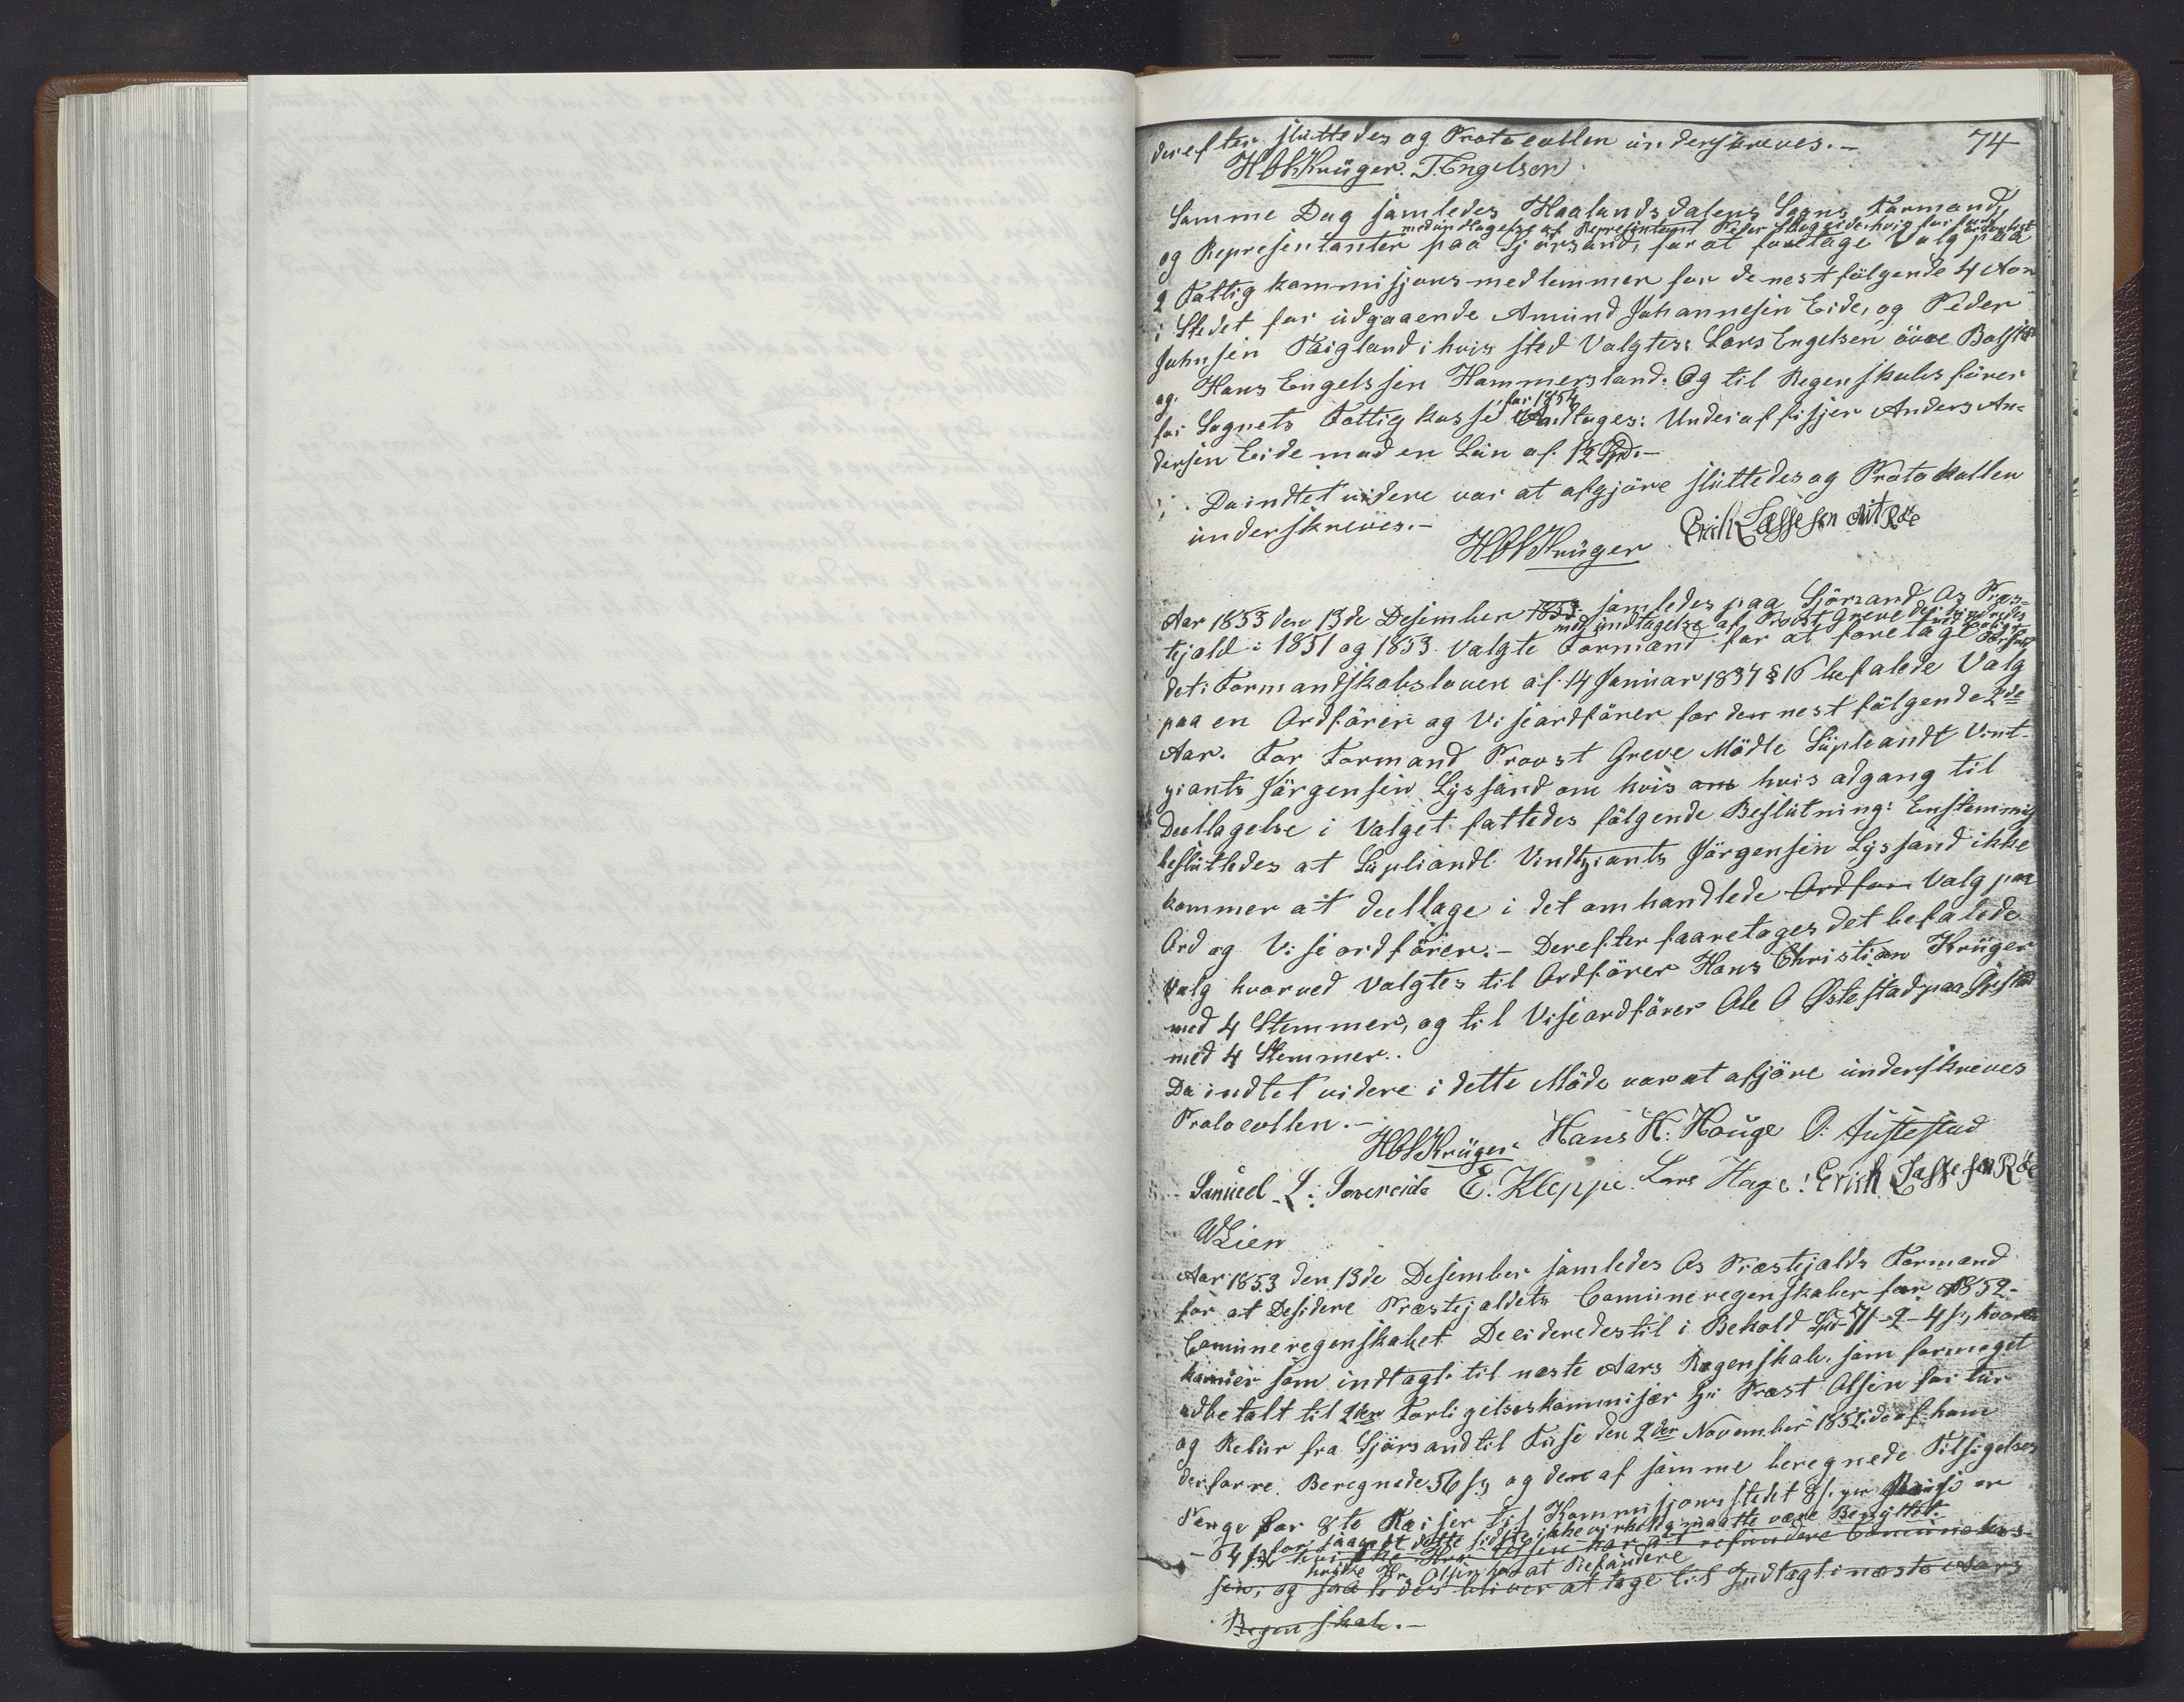 derefter sluttedes og Protocollen underskreves.— 74
HCKrüger. T. Engelsen
Samme Dag samledes Haalandsdalens Sogns Formænd,
med undtagelse af Representant Peder
og Representanter paa Sjørsand, for at foretage Valg paa
2 Fattigkommisjonsmedlemmer for de nest følgende 4 Aar
i Stedet for udgaaende Amund Johannesen Eide, og Peder
Johnsen Teigland i hvis sted Valgtes: Lars Engelsen øvre Bolstad
og Hans Engelssen Hammersland. Og til Regenskabsfører
for 1854
for Sognets Fattigkasse Andtages: Underoffisjer Anders An-
dersen Eide med en Løn af 1½ Spd.—
Da indtet videre var at afgjøre sluttedes og Protokollen
underskreves.—
HCKrüger Erik Lassesen Røe
Aar 1853 den 13de Desember 1853. samledes paa Sjørsand Os Præs-
med undtagelse af Provst Greve der hindredes
tejald i 1851 og 1853 Valgte Formænd for at foretage
det i Formandskabsloven af 14 Januar 1837 § 16 befalede Valg
paa en Ordfører og Viseordfører for den nest følgende 2de
Aar. For Formand Provst Greve Mødte Supleandt Vint-
ziants Jørgensen Lyssand om hvis om hvis adgang til
Deeltagelse i Valget fattedes følgende Beslutning: Enstemmig
besluttedes at Supliandt Vindtziants Jørgensen Lyssand ikke
kommer at deeltage i det omhandlede Ordfør Valg paa
Ord og Viseordfører.— Derefter faaretoges det befalede
Valg hvorved Valgtes til Ordfører Hans Christian Krüger
med 4 Stemmer, og til Viseordfører Ole O Østestad paa
med 4 Stemmer.
Da indtet videre i dette Møde var at afjøre underskreves
Protocollen.—
HCKrüger Hans H: Houge O: Austestad
Samuel L: Søvereide E. Kleppe Lars Hage: Erich Lassesen Røe
WLien
Aar 1853 den 13de Desember samledes Os Præstejalds Formænd
for at Desidere Præstejaldets Comuneregenskaber for 1852.
Comuneregenskabet Decideredes til i Behold Spd 71-2-4 s, hvortil
kommer som indtægt til næste Aars Regenskab, som formeget
udbetalt til 2den Forligelseskommisær Hr Præst Olsen for tur
og Retur fra Sjørsand til Fuse den 2den November 1852 de af ham
derforre Beregnede 56 s, og den af samme beregnede Tilsigelses
Penge for 8te Reiser til Kommisjonsstedet 8 s. pr Reise er
for saavidt dette sidste ikke virkelig maatte være Benyttet.
– 64 s. hvilke Hr Olsen har at refundere Comunekas-
hvilke Hr. Olsen har at Refundere
sen, og saaledes bliver at tage til Indtægt i næste Aars
Regenskab.—